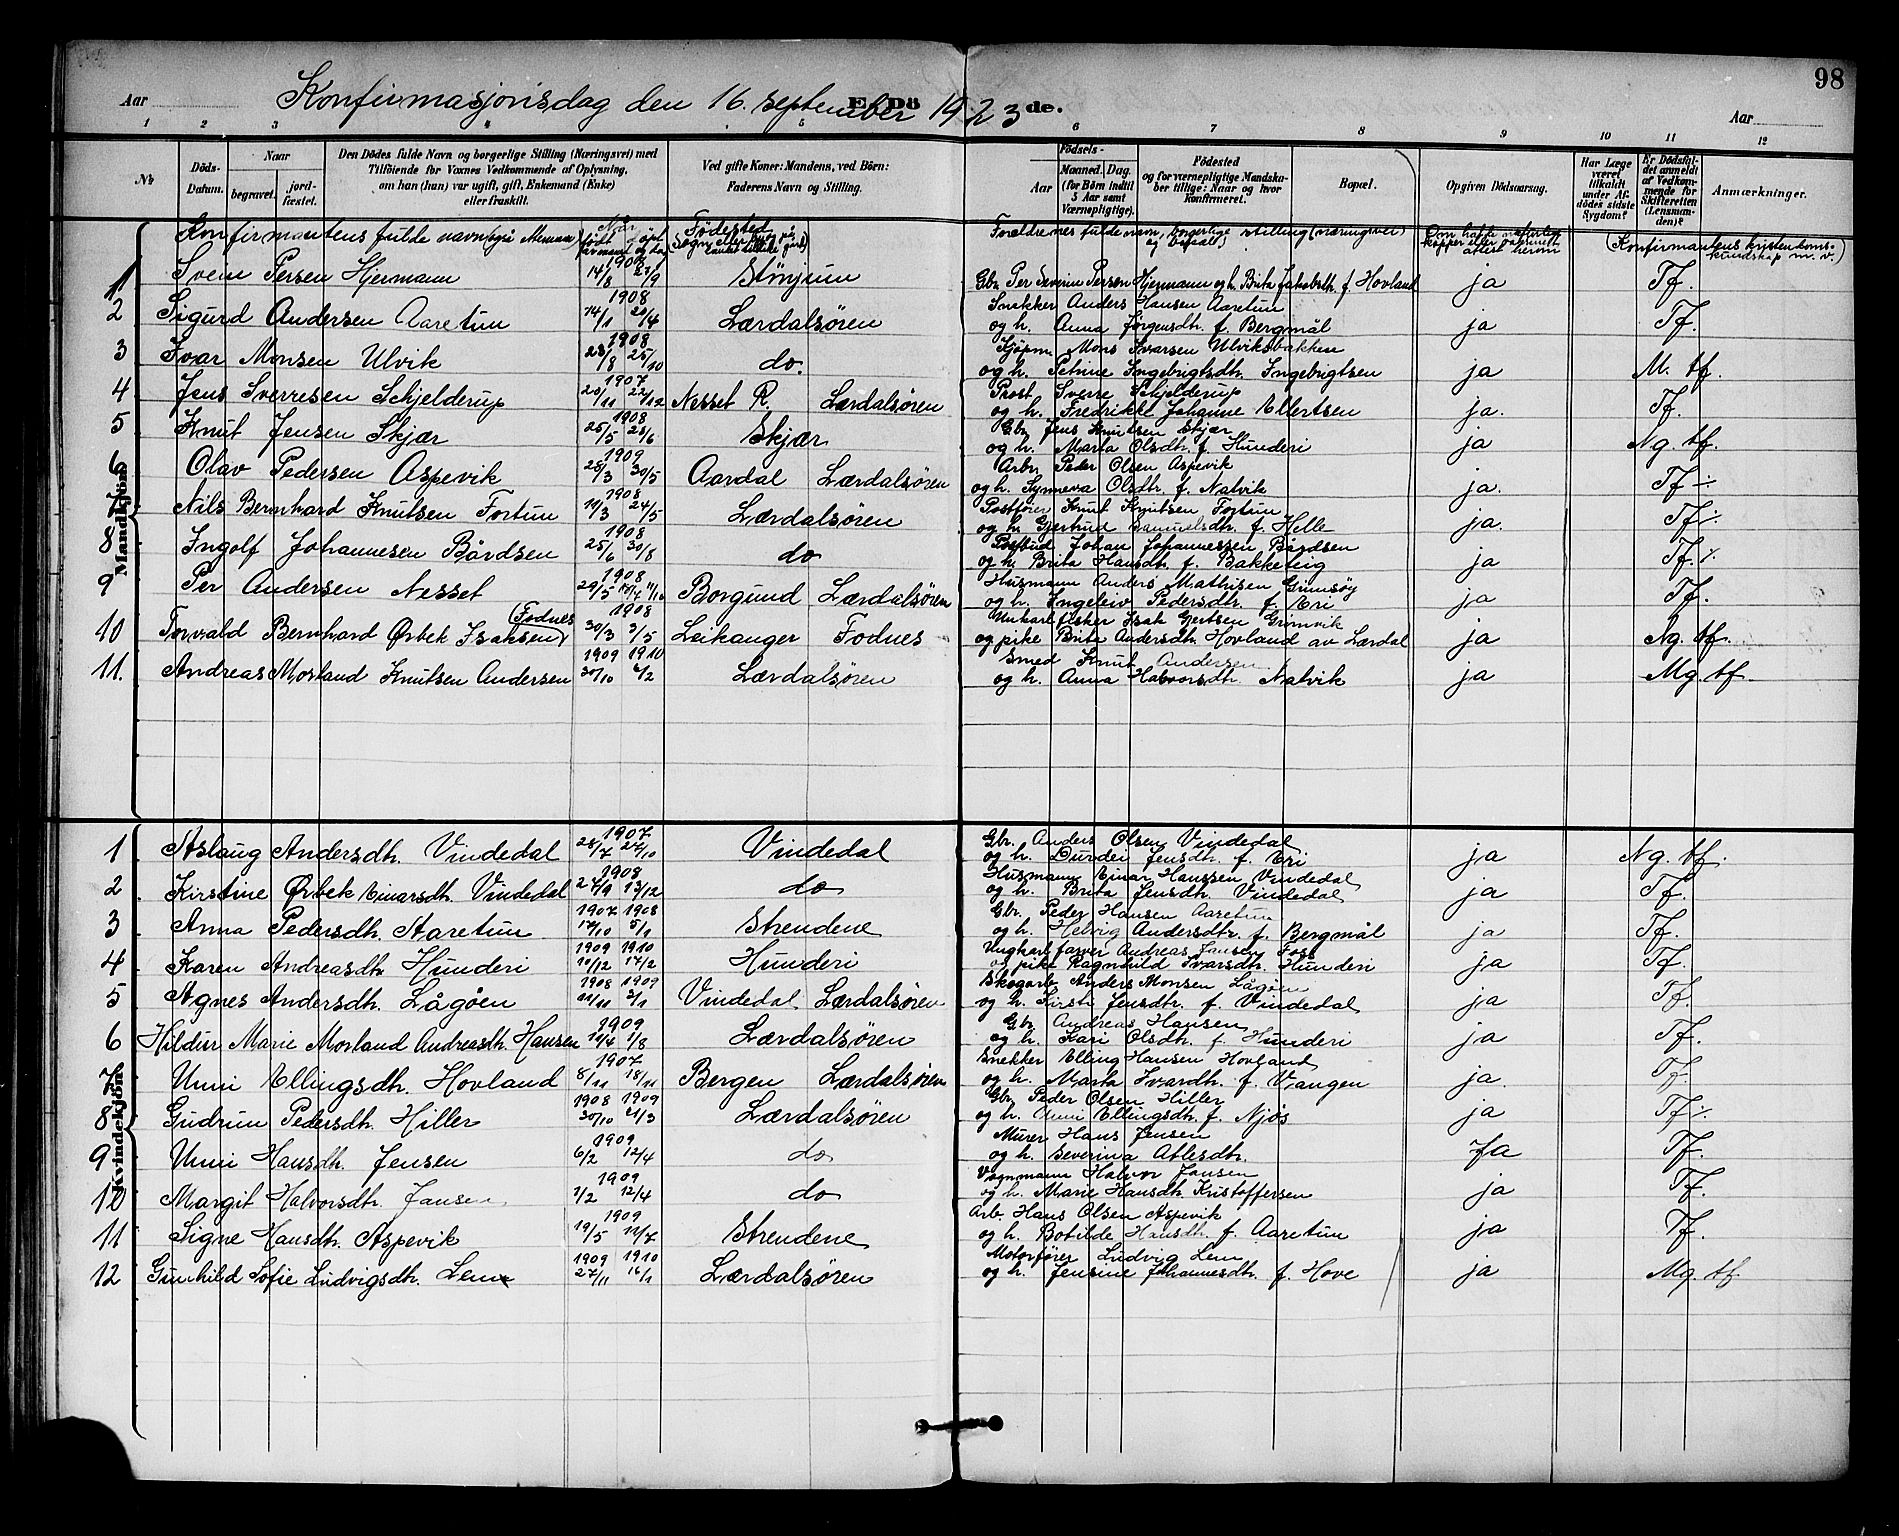 98
Aar Konfirmasjonsdag den 16. september 1923 E. Dö de. Aar
1 2 3 4 5 6 7 8 9 10 11 12
№ Döds-Datum. Naar begravet. jord-fæstet. Den Dödes fulde Navn og borgerlige Stilling (Næringsvei) med Tilföiende for Voxnes Vedkommende af Oplysning, om han (hun) var ugift, gift, Enkemand (Enke) eller fraskilt. Ved gifte Koner: Mandens, ved Börn: Faderens Navn og Stilling. Födsels- Aar Maaned. Dag. (for Börn indtil 5 Aar samt Værnepligtige). Födested og for værnepligtige Mandskaber tillige: Naar og hvor konfirmeret. Bopæl. Opgiven Dödsaarsag. Har Læge været tilkaldt under Afdödes sidste Sygdom? Er Dödsfaldet anmeldt af Vedkommende for Skifteretten (Lensmanden)? Anmærkninger.
Konfirmantens fulde navn Når født døpt Fødested Forældrenes fulde navn, borgerlige stilling (næringsvei) og bopæl (Konfirmantens kristendomskundskap m. v.)
Mandkjön
1 Svein Persen Hjermann 1908 14/8 23/9 Stönjum Gbr. Per Severin Persen Hjermann og h. Brita Jakobsdh. f. Hovland ja Tf.
2 Sigurd Andersen Aaretun 1908 14/1 20/4 Lærdalsören Snekker Anders Hansen Aaretun
og h. Anna Jørgensdh. f. Bergmål ja Tf.
3 Ivar Monsen Ulvik 1908 23/8 25/10 do. Kjøpm. Mons Ivarsen Ulviksbakken
og h. Petrine Ingebrigtsdh. Ingebrigtsen ja M. tf.
4 Jens Sverresen Schjelderup 1907 20/11 22/12 Nesset R. Lærdalsören Prost Sverre Schjelderup
og h. Fredrikke Johanne Ellertsen ja. Tf.
5 Knut Jensen Skjær 1908 25/5 28/6 Skjær Gbr. Jens Knutsen Skjær
og h. Marta Olsdh. f. Hunderi ja Ng. tf.
6 Olav Pedersen Aspevik 1909 28/3 30/5 Aardal Lærdalsören Arb. Peder Olsen Aspevik
og h. Synneva Olsdtr. f. Natvik ja. Tf.
7 Nils Bernhard Knutsen Fortun 1908 19/3 24/5 Lærdalsören Postfører Knut Knutsen Fortun
og h. Gjertrud Samuelsdh. f. Helle ja. Tf.
8 Ingolf Johannesen Bårdsen 1908 25/6 30/8 do Postbud Johan Johannessen Bårdsen
og h. Brita Hansdh. f. Bakketeig ja Tf.
9 Per Andersen Nesset 1908 29/5 Borgund Lærdalsören Husmann Anders Mathisen Grimsøy
og h. Ingeleiv Pedersdh. f. Eri ja Tf.
10 Torvald Bernhard Ørbek Isaksen (Fodnes) 1908 30/3 3/5 Leikanger Fodnes Unkarl fisker Isak Gjertsen Grönvik
og pike Brita Andersdh. Hovland av Lærdal ja Ng. tf.
11. Andreas Morland Knutsen Andersen 1909 1910 30/10 6/2 Lærdalsören Smed Knut Andersen
og h. Anna Halvorsdh. Natvik ja Mg. tf.
Kvindekjön
1 Aslaug Andersdh. Vindedal 1907 28/7 27/10 Vindedal Gbr. Anders Olsen Vindedal
og h. Durdei Jensdh. f. Eri ja Ng. tf.
2 Kirstine Ørbek Einarsdh. Vindedal 1908 27/9 13/12 do Husmann Einar Hanssen Vindedal
og h. Brita Jensdh. Vindedal ja Tf.
3 Anna Pedersdh. Aaretun 1907 1908 5/1 Strendene Gbr. Peder Hansen Aaretun
og h. Helvig Andersdtr. f. Bergmål ja Tf.
4 Karen Andreasdh. Hunderi 1909 1910 10/12 17/2 Hunderi Ungkarl farver Andreas Jansen Foss
og pike Ragnhild Ivarsdtr. Hunderi ja Tf.
5 Agnes Andersdh. Lågøen 1908 1909 3/1 Vindedal Lærdalsören Skogarb. Anders Monsen Lågøen
og h. Kirsti Jensdtr. f. Vindedal ja Tf.
6 Hildur Marie Morland Andreasdh. Hansen 1909 19/4 1/8 Lærdalsören Gbr. Andreas Hansen
og h. Kari Olsdh. f. Hunderi ja Tf.
7 Unni Ellingsdh. Hovland 1907 8/11 18/11 Bergen Lærdalsören Snekker Elling Hansen Hovland
og h. Marta Ivardh. f. Vangen ja. Tf.
8 Gudrun Pedersdh. Hiller 1908 1909 30/10 21/3 Lærdalsören Gbr. Peder Olsen Hiller
og h. Unni Ellingsdh. f. Njøs ja Tf.
9 Unni Hansdh. Jensen 1909 6/2 12/4 do Murer Hans Jensen
og h. Severina Atlesdtr. Ja Tf.
10 Margit Halvorsdh. Jansen 1909 7/2 12/4 do Vognmann Halvor Jansen
og h. Marie Hansdh. Kristoffersen ja Tf.
11 Signe Hansdh. Aspevik 1909 19/5 11/7 Strendene Arb. Hans Olsen Aspevik
og h. Botilde Hansdh. f. Aaretun ja Tf.
12 Gunhild Sofie Ludvigsdh. Lem 1909 1910 27/11 16/1 Lærdalsören Motorfører Ludvig Lem
og h. Jensine Johannesdtr. f. Hove ja Mg. tf.